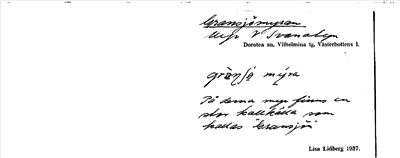 Gransjömyran
Myr V Svanaby
Dorotea sn, Vilhelmina tg, Västerbottens l.
grànsjǫ mýra
På denna myr finns en
stor kallkälla som
kallas "Gransjö"
Lisa Lidberg 1937.